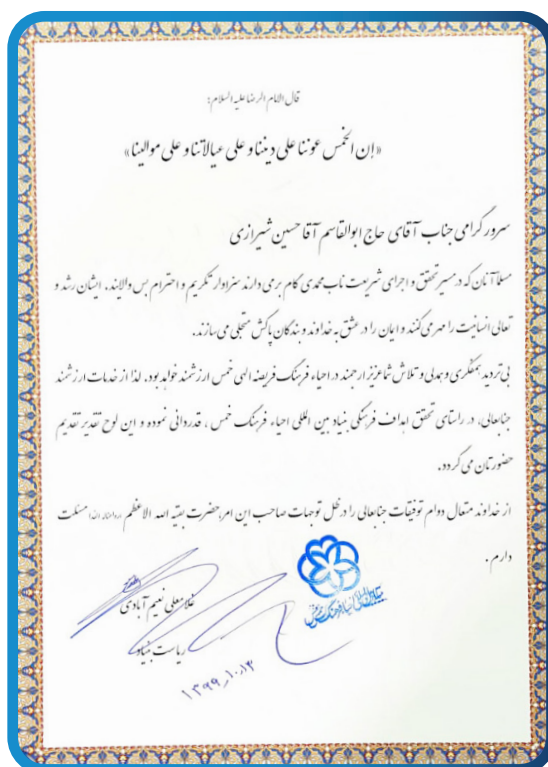 قال الامام الرضا علیه السلام:
«إن الخمس عوننا علی دیننا و علی عیالاتنا و علی موالینا»
سرور گرامی جناب آقای حاج ابوالقاسم آقا حسین شیرازی
مسلماً آنان که در مسیر تحقق و اجرای شریعت ناب محمدی گام برمی دارند سزاوار تکریم و احترام بس والایند. ایشان رشد و
تعالی انسانیت را مهر می کنند و ایمان را در عشق به خداوند و بندگان پاکش متجلی می سازند.
بی تردید همفکری و همدلی و تلاش شما عزیز ارجمند در احیاء فرهنگ فریضه الهی خمس ارزشمند خواهد بود. لذا از خدمات ارزشمند
جنابعالی، در راستای تحقق اهداف فرهنگی بنیاد بین المللی احیاء فرهنگ خمس، قدردانی نموده و این لوح تقدیر تقدیم
حضورتان می گردد.
از خداوند متعال دوام توفیقات جنابعالی را در ظل توجهات صاحب این امر، حضرت بقیه الله الاعظم مسئلت
دارم.
غلامعلی نعیم آبادی
ریاست بنیاد
۱۳۹۹,۱۰,۱۳